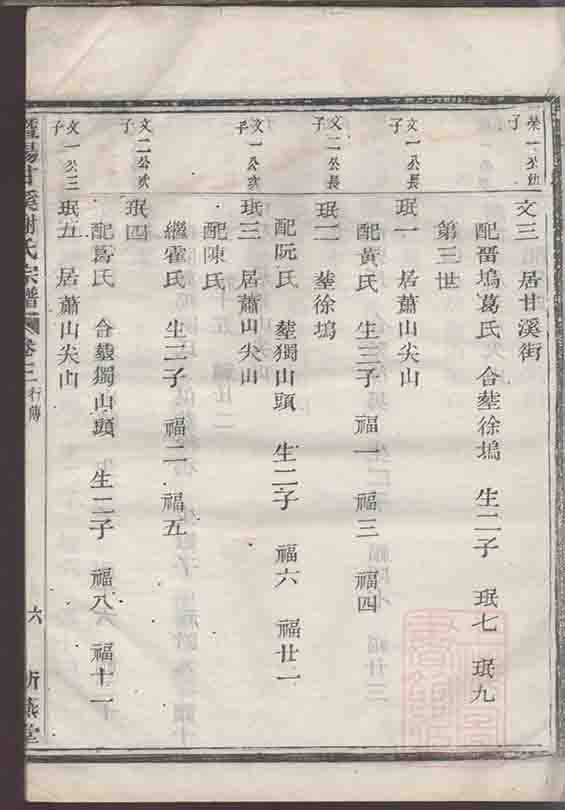 榮一公仙子
文三 居甘溪街
配晋塢葛氏 合塟徐塢 生二子 珉七 珉九
第三世
文一公長子
珉一 居蕭山尖山
配黃氏 生三子 福一 福三 福四
文二公長子
珉二 塟徐塢
配阮氏 塟獨山頭 生二子 福六 福廿一
文一公次子
珉三 居蕭山尖山
配陳氏
繼霍氏 生二子 福二 福五
文二公次子
珉四
配葛氏 合塟獨山頭 生二子 福八 福十一
文一公三子
珉五 居蕭山尖山
暨陽甘溪謝氏宗譜 卷 行傳 六